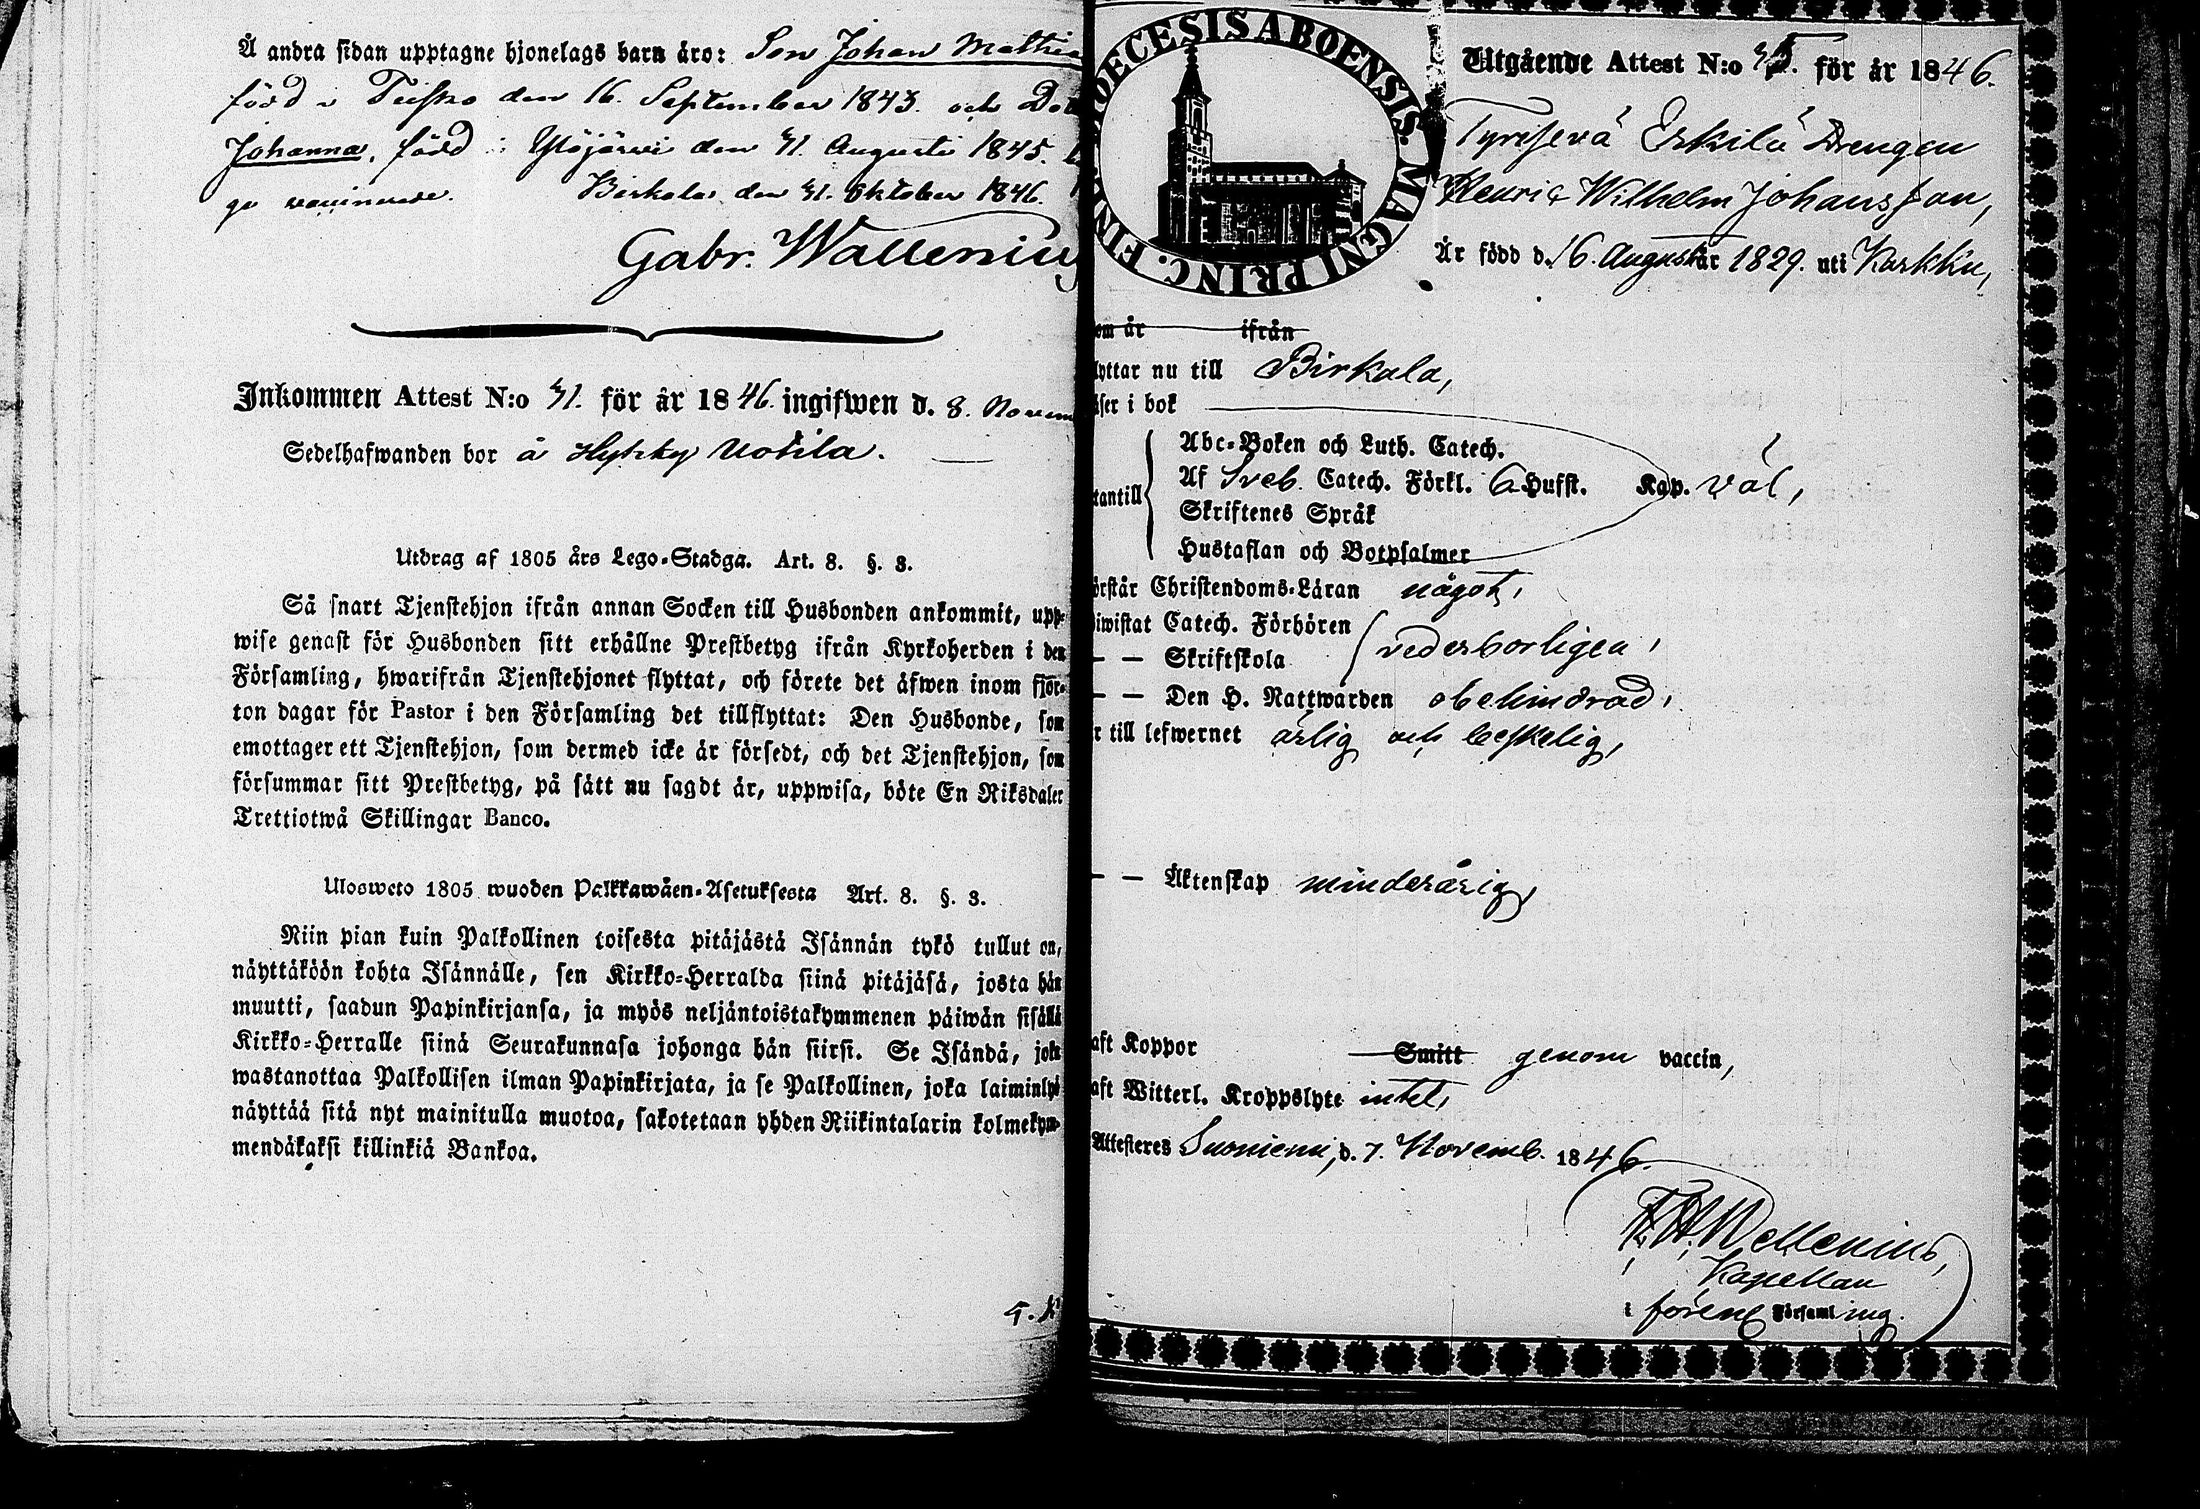 Å andra sidan upptagne hjonelags barn äro: Son Johan Mathi
född i Teisko den 16. September 1843. och Do
Johanna, född i Ylöjärvi den 21. Augusti 1845.
ge vaccinerade. Birkala den 21. Oktober 1846.
Gabr. Wallenius
Inkommen Attest N:o 21. för år 1846. ingifwen d. 8. Novem
Sedelhafwanden bor å Hyhky Uotila.
Utdrag af 1805 års Lego-Stadga. Art. 8. §. 3.
Så snart Tjenstehjon ifrån annan Socken till Husbonden ankommit, upp-
wise genast för Husbonden sitt erhållne Prestbetyg ifrån Kyrkoherden i den
Församling, hwarifrån Tjenstehjonet flyttat, och förete det äfwen inom fjor-
ton dagar för Pastor i den Församling det tillflyttat: Den Husbonde, som
emottager ett Tjenstehjon, som dermed icke är försedt, och det Tjenstehjon, som
försummar sitt Prestbetyg, på sätt nu sagdt är, uppwisa, böte En Riksdaler
Trettiotwå Skillingar Banco.
Ulosweto 1805 wuoden Palkkawäen-Asetuksesta Art. 8. §. 3.
Niin pian kuin Palkollinen toisesta pitäjästä Isännän tykö tullut on,
näyttäköön kohta Isännälle, sen Kirkko-Herralda siinä pitäjäsä, josta hän
muutti, saadun Papinkirjansa, ja myös neljäntoistakymmenen päiwän sisällä
Kirkko-Herralle siinä Seurakunnasa johonga hän siirsi. Se Isändä, joka
wastanottaa Palkollisen ilman Papinkirjata, ja se Palkollinen, joka laiminlyö
näyttää sitä nyt mainitulla muotoa, sakotetaan yhden Riikintalarin kolmekym-
mendäkaksi killinkiä Bankoa.
DIOECESIS ABOENSIS. MAGNI PRINC. FIN
Utgående Attest N:o 25. för år 1846.
Tyrfsevä Eskilä Drengen
Henric Wilhelm Johansson,
År född d. 16. Augusti år 1829. uti Karkku,
om år ifrån
lyttar nu till Birkala,
äser i bok
tantill
Abc-Boken och Luth. Catech.
Af Sveb. Catech. Förkl. 6 Hufst. Kap. väl,
Skriftenes Språk
Hustaflan och Botpsalmer
örstår Christendoms-Läran något,
iwistat Catech. Förhören
— — Skriftskola vederborligen,
— — Den H. Nattwarden obehindrad,
r till lefwernet ärlig och beskelig,
— — Äktenskap minderårig,
aft Koppor Smitt genom vaccin,
aft Witterl. Kroppslyte intet,
Attesteres Suoniemi, d. 7. Novemb. 1846.
Wellenius,
Kapellan
i förene Församling.